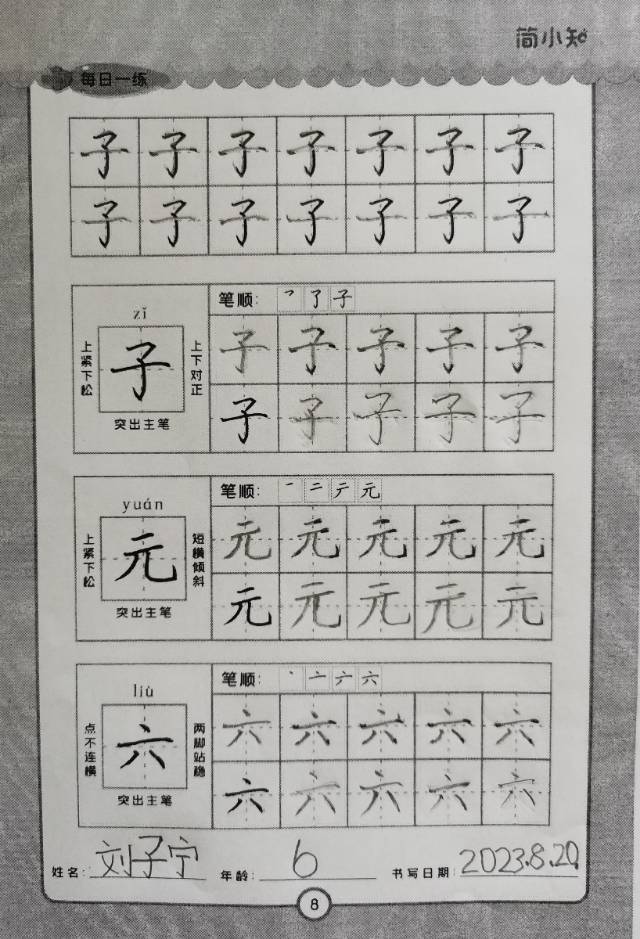 简小知
每日一练
子 子 子 子 子 子 子
子 子 子 子 子 子 子
zǐ
上紧下松
子
上下对正
突出主笔
笔顺: ㇇ 了 子
子 子 子 子 子
子 子 子 子 子
yuán
上紧下松
元
短横倾斜
突出主笔
笔顺: 一 二 テ 元
元 元 元 元 元
元 元 元 元 元
liù
点不连横
六
两脚站稳
突出主笔
笔顺: 丶 亠 六 六
六 六 六 六 六
六 六 六 六 六
姓名: 刘子宁 年龄: 6 书写日期: 2023.8.20
8